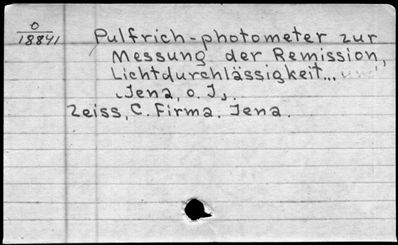 O
18841
Pulfrich-photometer zur
Messung der Remission,
Lichtdurchlässigkeit...
Jena, o. J.
Zeiss, C. Firma. Jena.